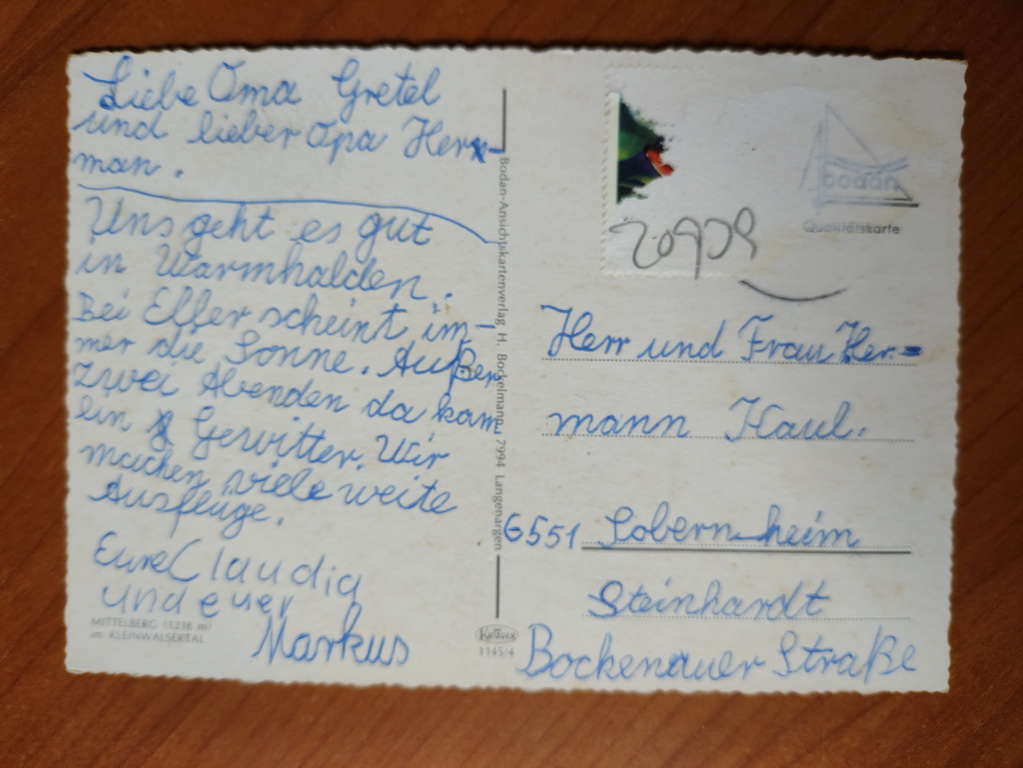 Liebe Oma Gretel
und lieber Opa Her-
man.
Uns geht es gut
in Warmhalden.
Bei Elfer scheint im-
mer die Sonne. Außer
zwei Abenden da kam
ein Gewitter. Wir
machen viele weite
Ausflüge.
Eure Claudia
und euer
Markus
MITTELBERG (1218 m)
im KLEINWALSERTAL
Bodan-Ansichtskartenverlag H. Bockelmann, 7994 Langenargen
Krüger
1145/4
bodan
Qualitätskarte
Herr und Frau Her-
mann Kaul.
6551 Sobernheim
Steinhardt
Bockenauer Straße